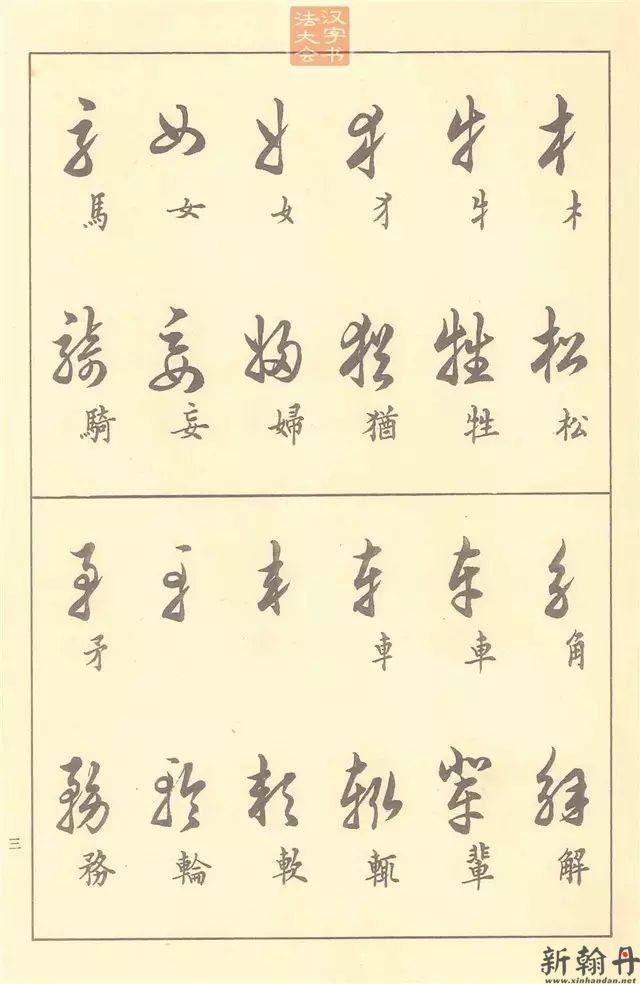 汉字书
法大会
木 牛 犭 女 女 馬
木 牛 犭 女 女 馬
松 牲 猶 婦 妄 騎
松 牲 猶 婦 妄 騎
角 車 車 車 車 矛
角 車 車 矛
解 輩 輒 軟 輪 務
解 輩 輒 軟 輪 務
三
新翰丹
www.xinhandan.net